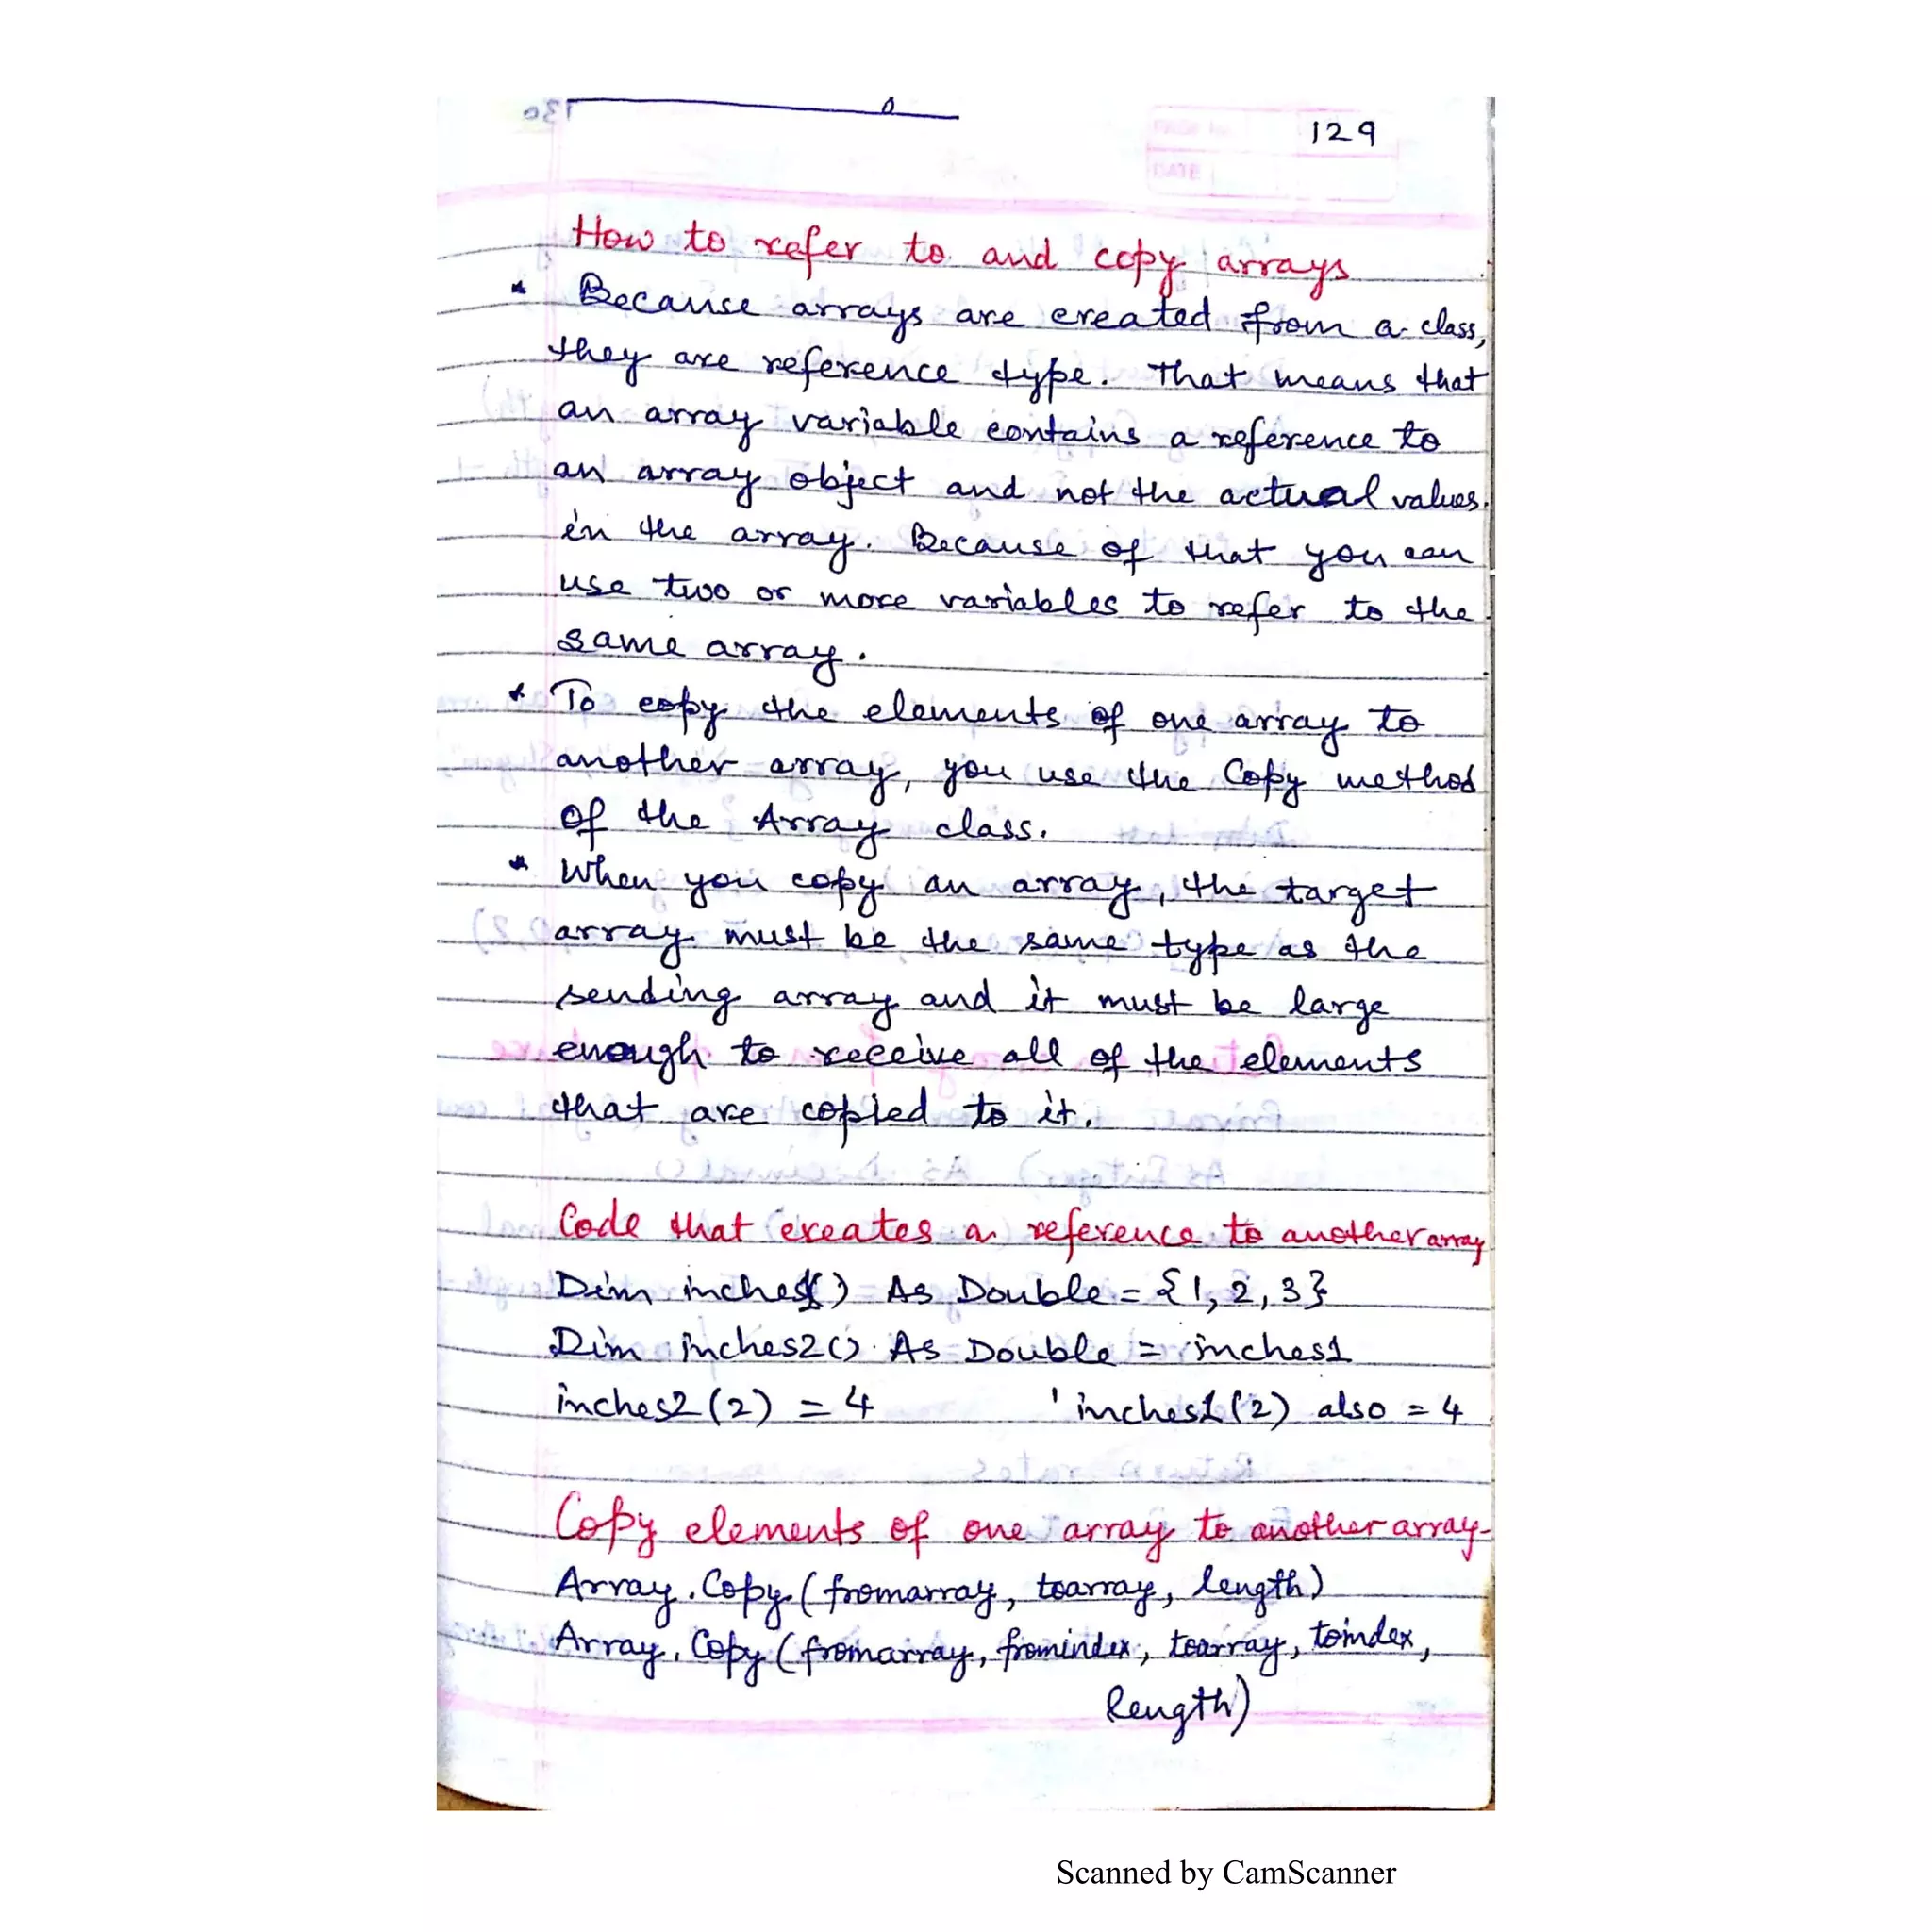 129
How to refer to and copy arrays
* Because arrays are created from a class,
they are reference type. That means that
an array variable contains a reference to
an array object and not the actual values
in the array. Because of that you can
use two or more variables to refer to the
same array.
* To copy the elements of one array to
another array, you use the Copy method
of the Array class.
* When you copy an array, the target
array must be the same type as the
sending array and it must be large
enough to receive all of the elements
that are copied to it.
Code that creates a reference to another array
Dim inches1() As Double = {1, 2, 3}
Dim inches2() As Double = inches1
inches2(2) = 4 'inches1(2) also = 4
Copy elements of one array to another array-
Array.Copy(fromarray, toarray, length)
Array.Copy(fromarray, fromindex, toarray, toindex,
length)
Scanned by CamScanner